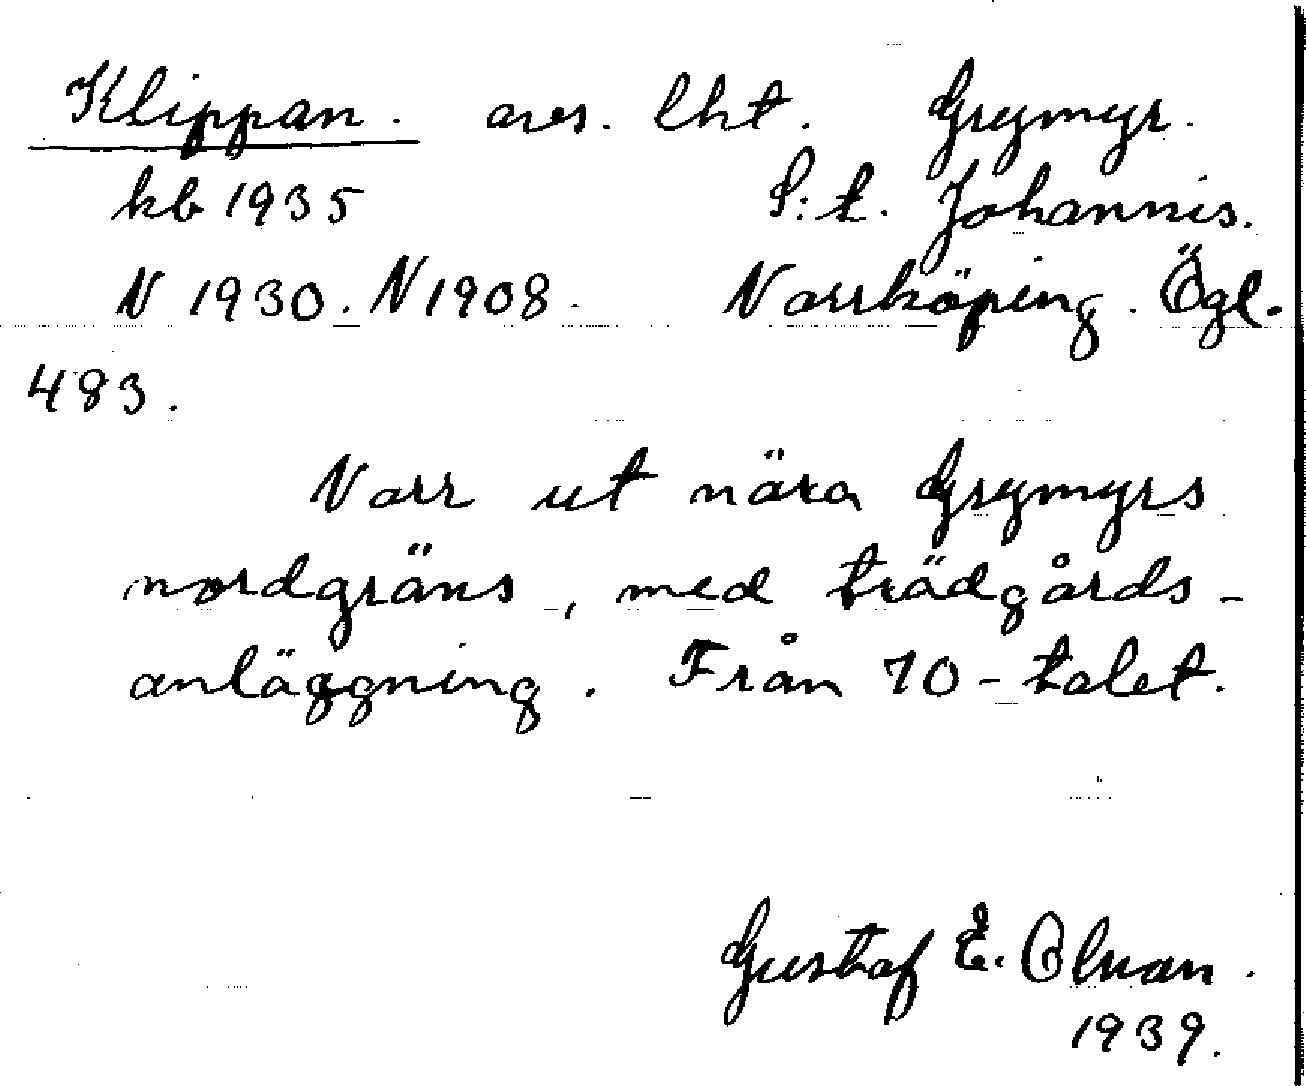 Klippan. avs. lht. Grymyr.
kb 1935 S:t. Johannis.
N 1930. N 1908. Norrköping. Ögl.
483.
Norr ut nära Grymyrs
nordgräns, med trädgårds-
anläggning. Från 70-talet.
Gustaf E. Olman.
1939.